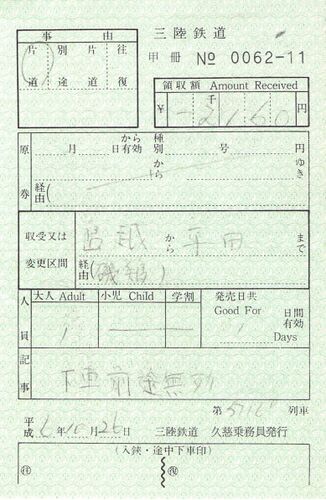 三陸鉄道
事由
片道 別途 片道 往復
甲冊 № 0062-11
領収額 Amount Received
¥ 千 2160 円
原券
月 日から有効 種別 号 円
から ゆき
経由(
収受又は変更区間
から 平田 まで
経由(
人員
大人 Adult 小児 Child 学割 発売日共 Good For 日間有効 Days
1 1
記事
下車前途無効
第 列車
平成 年 月 26 日 三陸鉄道 久慈乗務員発行
(入鋏・途中下車印)